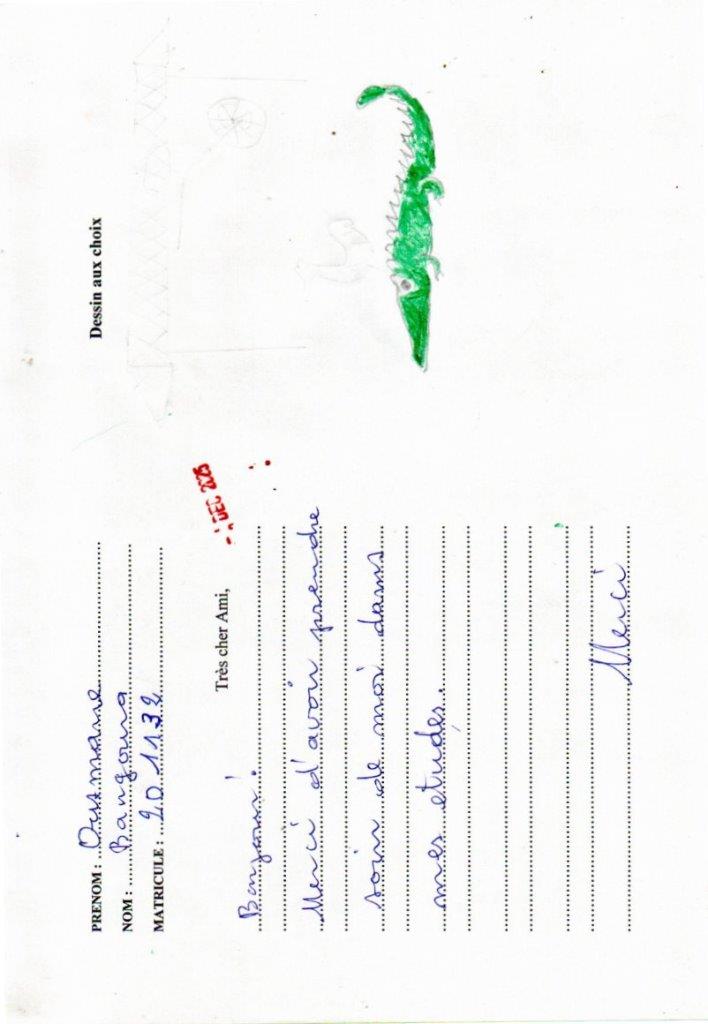 PRENOM : Ousmane
NOM : Bangoura
MATRICULE : 201132
DEC 2025
Très cher Ami,
Bonjour!
Merci d'avoir prendre
soin de moi dans
mes etudes.
Merci
Dessin aux choix